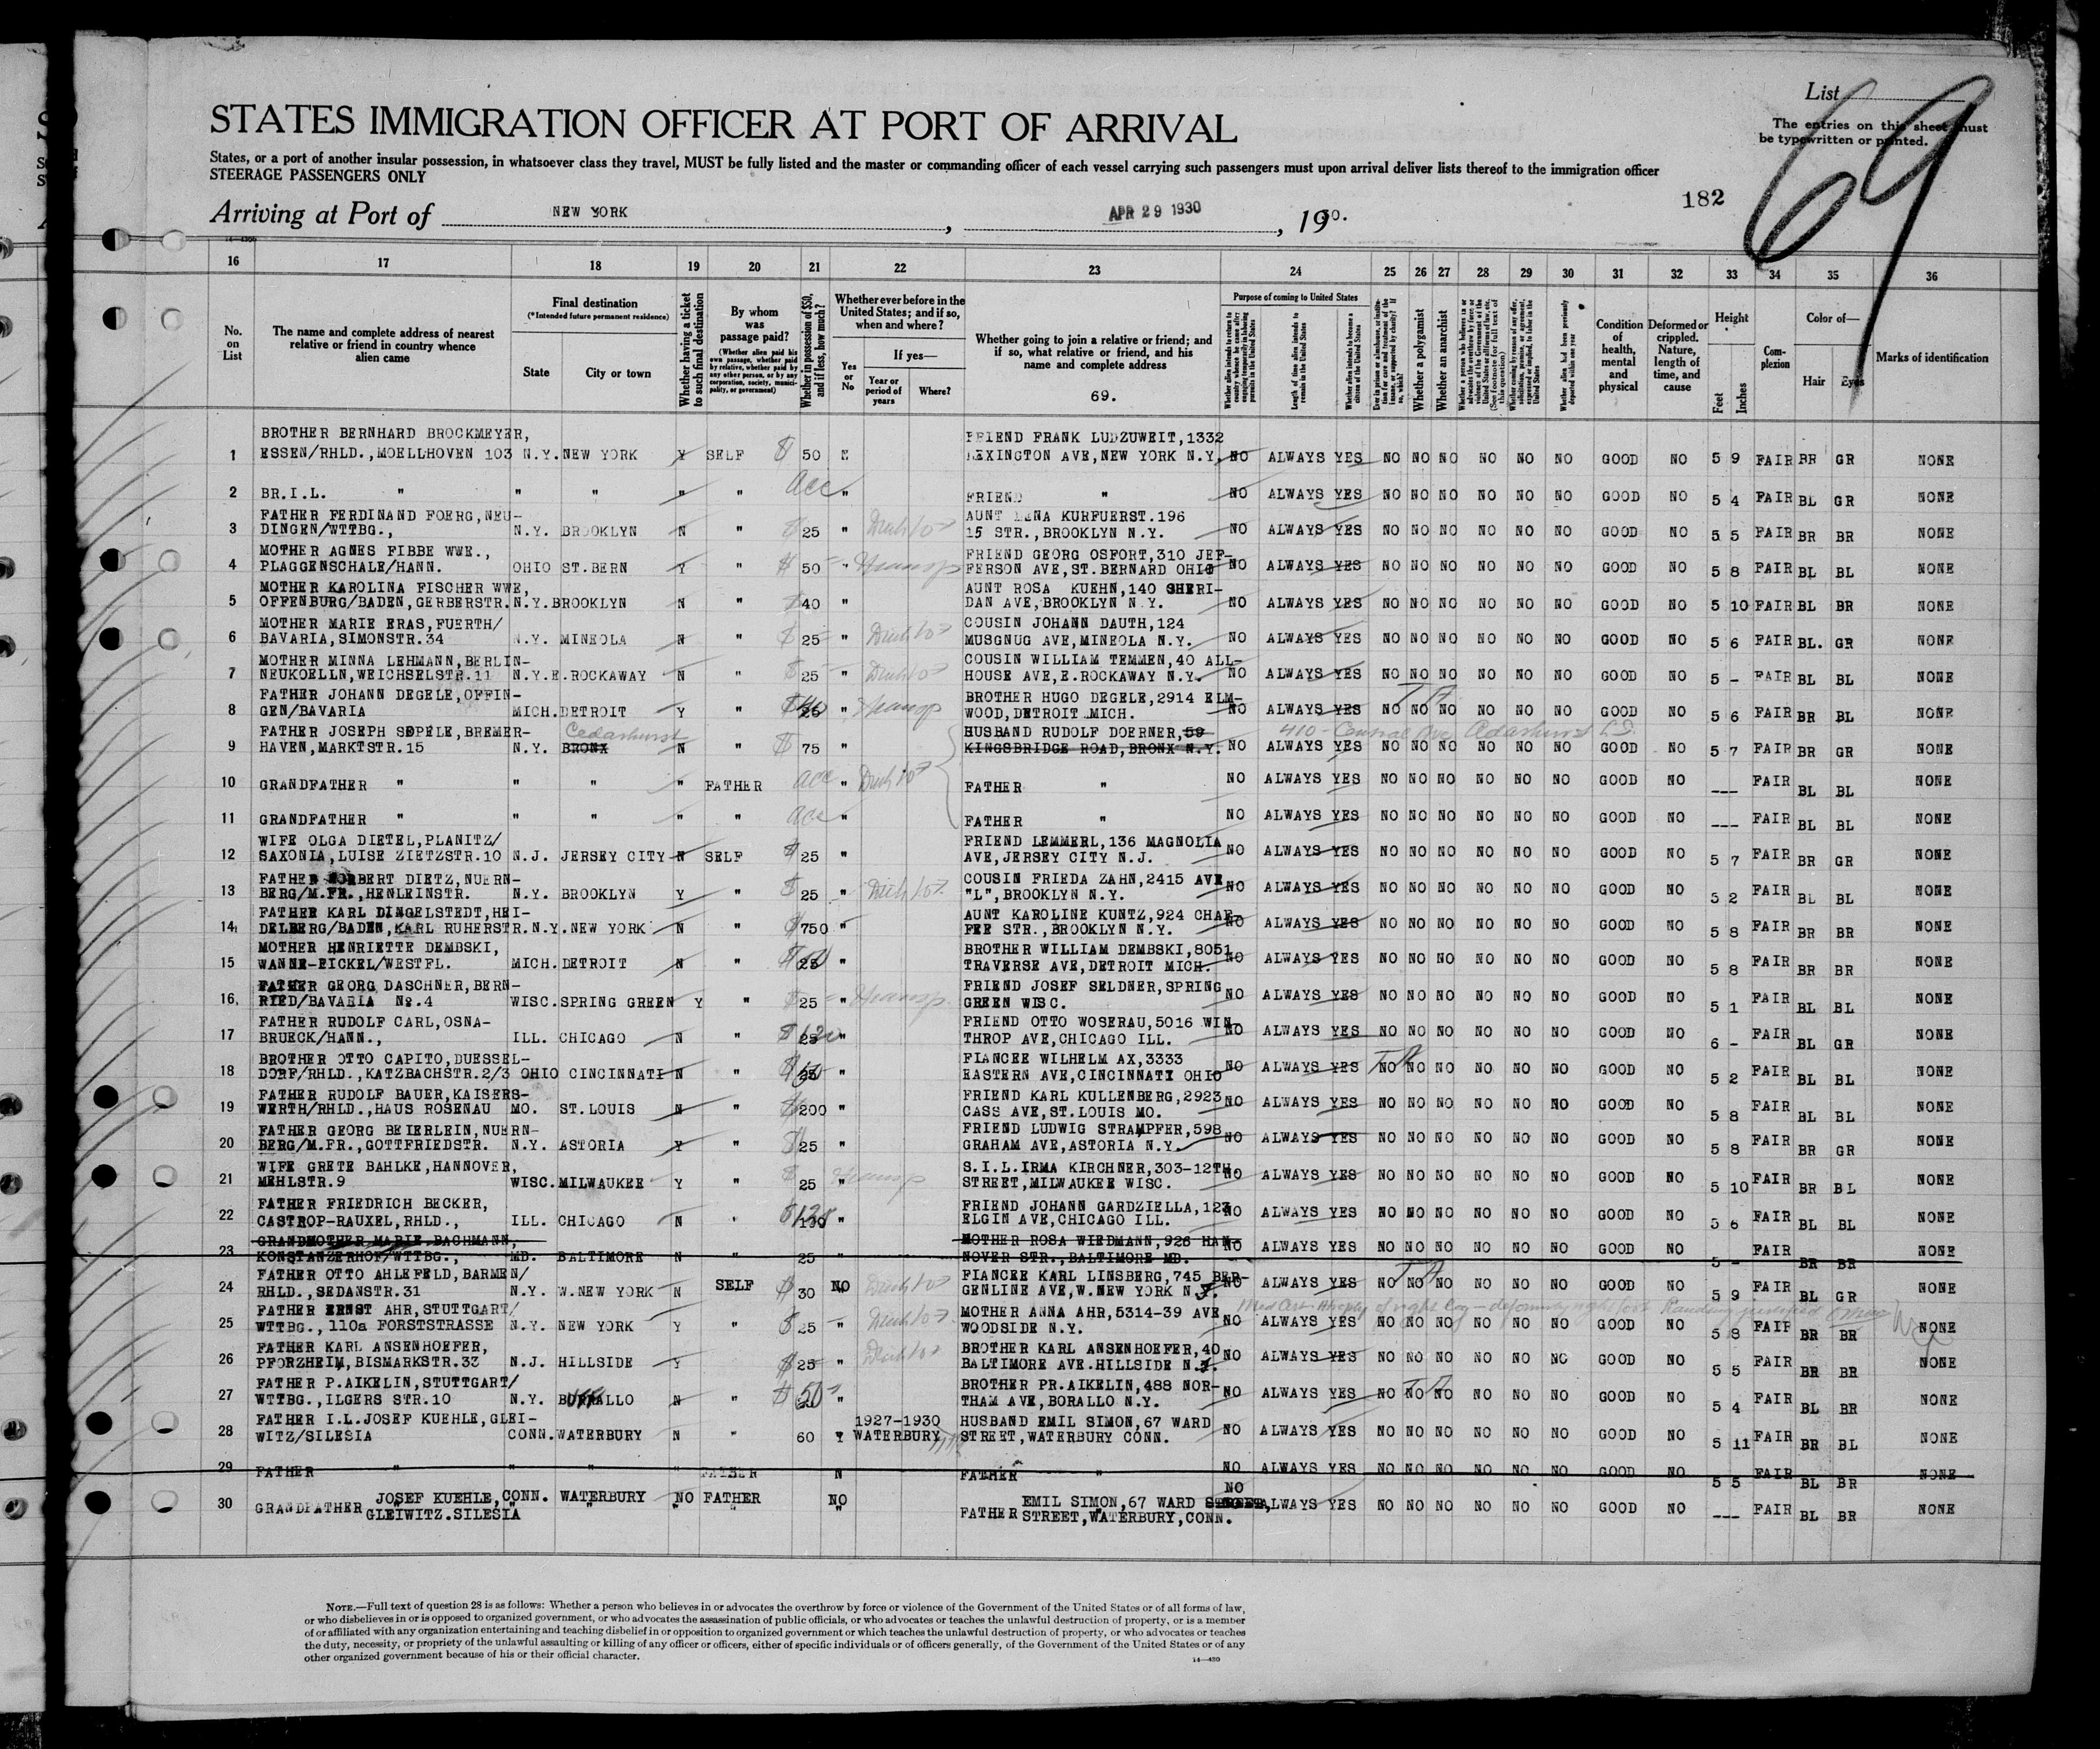 List
69
The entries on this sheet must
be typewritten or printed.
STATES IMMIGRATION OFFICER AT PORT OF ARRIVAL
States, or a port of another insular possession, in whatsoever class they travel, MUST be fully listed and the master or commanding officer of each vessel carrying such passengers must upon arrival deliver lists thereof to the immigration officer
STEERAGE PASSENGERS ONLY
182
Arriving at Port of NEW YORK, APR 29 1930, 1930.
16 17 18 19 20 21 22 23 24 25 26 27 28 29 30 31 32 33 34 35 36
No. on List
The name and complete address of nearest relative or friend in country whence alien came
Final destination
(*Intended future permanent residence)
State
City or town
Whether having a ticket to such final destination
By whom was passage paid?
(Whether alien paid his own passage, whether paid by relative, whether paid by any other person, or by any corporation, society, municipality, or government)
Whether in possession of $50, and if less, how much?
Whether ever before in the United States; and if so, when and where?
Yes or No
If yes—
Year or period of years
Where?
Whether going to join a relative or friend; and if so, what relative or friend, and his name and complete address
69.
Purpose of coming to United States
Length of time alien intends to remain in the United States
Whether alien intends to become a citizen of the United States
Whether a polygamist
Whether an anarchist
Condition of health, mental and physical
Deformed or crippled. Nature, length of time, and cause
Height
Feet
Inches
Complexion
Color of—
Hair
Eyes
Marks of identification
BROTHER BERNHARD BROCKMEYER, FRIEND FRANK LUDZUWEIT,1332
1 ESSEN/RHLD.,MOELLHOVEN 103 N.Y. NEW YORK Y SELF $ 50 N LEXINGTON AVE,NEW YORK N.Y. NO ALWAYS YES NO NO NO NO NO NO GOOD NO 5 9 FAIR BR GR NONE
2 BR.I.L. " " " " " acc " FRIEND " NO ALWAYS YES NO NO NO NO NO NO GOOD NO 5 4 FAIR BL GR NONE
FATHER FERDINAND FOERG,NEU- AUNT LENA KURFUERST.196
3 DINGEN/WTTBG., N.Y. BROOKLYN N " $ 25 " 15 STR.,BROOKLYN N.Y. NO ALWAYS YES NO NO NO NO NO NO GOOD NO 5 5 FAIR BR BR NONE
MOTHER AGNES FIBBE WWE., FRIEND GEORG OSFORT,310 JEF-
4 PLAGGENSCHALE/HANN. OHIO ST.BERN Y " $ 50 " Transp FERSON AVE,ST.BERNARD OHIO NO ALWAYS YES NO NO NO NO NO NO GOOD NO 5 8 FAIR BL BL NONE
MOTHER KAROLINA FISCHER WWE, AUNT ROSA KUEHN,140 SHERI-
5 OFFENBURG/BADEN,GERBERSTR. N.Y. BROOKLYN N " $ 40 " DAN AVE,BROOKLYN N.Y. NO ALWAYS YES NO NO NO NO NO NO GOOD NO 5 10 FAIR BL BR NONE
MOTHER MARIE ERAS,FUERTH/ COUSIN JOHANN DAUTH,124
6 BAVARIA,SIMONSTR.34 N.Y. MINEOLA N " $ 25 " MUSGNUG AVE,MINEOLA N.Y. NO ALWAYS YES NO NO NO NO NO NO GOOD NO 5 6 FAIR BL. GR NONE
MOTHER MINNA LEHMANN,BERLIN- COUSIN WILLIAM TEMMEN,40 ALL-
7 NEUKOELLN,WEICHSELSTR.11 N.Y. E.ROCKAWAY N " $ 25 " HOUSE AVE,E.ROCKAWAY N.Y. NO ALWAYS YES NO NO NO NO NO NO GOOD NO 5 - FAIR BL BL NONE
FATHER JOHANN DEGELE,OFFIN- BROTHER HUGO DEGELE,2914 ELM-
8 GEN/BAVARIA MICH. DETROIT Y " $ 25 " Transp WOOD,DETROIT MICH. NO ALWAYS YES NO NO NO NO NO NO GOOD NO 5 6 FAIR BR BL NONE
FATHER JOSEPH SEPELE,BREMER- Cedarhurst HUSBAND RUDOLF DOERNER,59 410 - Central Ave Cedarhurst L.I.
9 HAVEN,MARKTSTR.15 N.Y. BRONX N " $ 75 " KINGSBRIDGE ROAD,BRONX N.Y. NO ALWAYS YES NO NO NO NO NO NO GOOD NO 5 7 FAIR BR GR NONE
10 GRANDFATHER " " " " FATHER acc " FATHER " NO ALWAYS YES NO NO NO NO NO NO GOOD NO --- FAIR BL BL NONE
11 GRANDFATHER " " " " " acc " FATHER " NO ALWAYS YES NO NO NO NO NO NO GOOD NO --- FAIR BL BL NONE
WIFE OLGA DIETEL,PLANITZ/ FRIEND LEMMERL,136 MAGNOLIA
12 SAXONIA,LUISE ZIETZSTR.10 N.J. JERSEY CITY N SELF $ 25 " AVE,JERSEY CITY N.J. NO ALWAYS YES NO NO NO NO NO NO GOOD NO 5 7 FAIR BR GR NONE
FATHER NORBERT DIETZ,NUERN- COUSIN FRIEDA ZAHN,2415 AVE
13 BERG/M.FR.,HENLEINSTR. N.Y. BROOKLYN Y " $ 25 " "L",BROOKLYN N.Y. NO ALWAYS YES NO NO NO NO NO NO GOOD NO 5 2 FAIR BL BL NONE
FATHER KARL DINGELSTEDT,HEI- AUNT KAROLINE KUNTZ,924 CHAF-
14 DELBERG/BADEN,KARL RUHERSTR. N.Y. NEW YORK N " $ 750 " FEE STR.,BROOKLYN N.Y. NO ALWAYS YES NO NO NO NO NO NO GOOD NO 5 8 FAIR BR BR NONE
MOTHER HENRIETTE DEMBSKI, BROTHER WILLIAM DEMBSKI,8051
15 WANNE-EICKEL/WESTFL. MICH. DETROIT N " $ 25 " TRAVERSE AVE,DETROIT MICH. NO ALWAYS YES NO NO NO NO NO NO GOOD NO 5 8 FAIR BR BR NONE
FATHER GEORG DASCHNER,BERN- FRIEND JOSEF SELDNER,SPRING
16 RIED/BAVARIA No.4 WISC. SPRING GREEN Y " $ 25 " Transp. GREEN WISC. NO ALWAYS YES NO NO NO NO NO NO GOOD NO 5 1 FAIR BL BL NONE
FATHER RUDOLF CARL,OSNA- FRIEND OTTO WOSERAU,5016 WIN-
17 BRUECK/HANN., ILL. CHICAGO N " $ 25 " THROP AVE,CHICAGO ILL. NO ALWAYS YES NO NO NO NO NO NO GOOD NO 6 - FAIR BL GR NONE
BROTHER OTTO CAPITO,DUESSEL- FIANCEE WILHELM AX,3333
18 DORF/RHLD.,KATZBACHSTR.2/3 OHIO CINCINNATI N " $ " EASTERN AVE,CINCINNATI OHIO NO ALWAYS YES NO NO NO NO NO NO GOOD NO 5 2 FAIR BL BL NONE
FATHER RUDOLF BAUER,KAISERS- FRIEND KARL KULLENBERG,2923
19 WERTH/RHLD.,HAUS ROSENAU MO. ST.LOUIS N " $ 200 " CASS AVE,ST.LOUIS MO. NO ALWAYS YES NO NO NO NO NO NO GOOD NO 5 8 FAIR BL BL NONE
FATHER GEORG BEIERLEIN,NUERN- FRIEND LUDWIG STRAMPFER,598
20 BERG/M.FR.,GOTTFRIEDSTR. N.Y. ASTORIA Y " $ 25 " GRAHAM AVE,ASTORIA N.Y. NO ALWAYS YES NO NO NO NO NO NO GOOD NO 5 8 FAIR BR GR NONE
WIFE GRETE BAHLKE,HANNOVER, S.I.L.IRMA KIRCHNER,303-12TH
21 MEHLSTR.9 WISC. MILWAUKEE Y " $ 25 " Transp STREET,MILWAUKEE WISC. NO ALWAYS YES NO NO NO NO NO NO GOOD NO 5 10 FAIR BR BL NONE
FATHER FRIEDRICH BECKER, FRIEND JOHANN GARDZIELLA,123
22 CASTROP-RAUXEL,RHLD., ILL. CHICAGO N " $ " ELGIN AVE,CHICAGO ILL. NO ALWAYS YES NO NO NO NO NO NO GOOD NO 5 6 FAIR BL BL NONE
GRANDMOTHER MARIE BACHMANN, MOTHER ROSA WIEDMANN,926 HAN-
23 KONSTANZERHOF/WTTBG., MD. BALTIMORE N " 25 " NOVER STR.,BALTIMORE MD. NO ALWAYS YES NO NO NO NO NO NO GOOD NO 5 - FAIR BR BR NONE
FATHER OTTO AHLEFELD,BARMEN/ FIANCEE KARL LINSBERG,745 BER-
24 RHLD.,SEDANSTR.31 N.Y. W.NEW YORK N SELF $ 30 NO GENLINE AVE,W.NEW YORK N.J. NO ALWAYS YES NO NO NO NO NO NO GOOD NO 5 9 FAIR BL GR NONE
FATHER ERNST AHR,STUTTGART/ MOTHER ANNA AHR,5314-39 AVE Med Cert. Atrophy of right leg - deformity right foot
25 WTTBG., 110a FORSTSTRASSE N.Y. NEW YORK Y " $ 25 " WOODSIDE N.Y. NO ALWAYS YES NO NO NO NO NO NO GOOD NO 5 8 FAIR BR BR NONE
FATHER KARL ANSENHOEFER, BROTHER KARL ANSENHOEFER,40
26 PFORZHEIM,BISMARKSTR.33 N.J. HILLSIDE Y " $ 25 " BALTIMORE AVE.HILLSIDE N.J. NO ALWAYS YES NO NO NO NO NO NO GOOD NO 5 5 FAIR BR BR NONE
FATHER P.AIKELIN,STUTTGART/ BROTHER PR.AIKELIN,488 NOR-
27 WTTBG.,ILGERS STR.10 N.Y. BUFFALLO N " $ 50 " THAM AVE,BORALLO N.Y. NO ALWAYS YES NO NO NO NO NO NO GOOD NO 5 4 FAIR BL BR NONE
FATHER I.L.JOSEF KUEHLE,GLEI- 1927-1930 HUSBAND EMIL SIMON,67 WARD
28 WITZ/SILESIA CONN. WATERBURY N " 60 Y WATERBURY STREET,WATERBURY CONN. NO ALWAYS YES NO NO NO NO NO NO GOOD NO 5 11 FAIR BR BL NONE
29 FATHER " " " " FATHER N FATHER " NO ALWAYS YES NO NO NO NO NO NO GOOD NO 5 5 FAIR BL BR NONE
JOSEF KUEHLE, CONN. WATERBURY NO FATHER NO EMIL SIMON,67 WARD STREET, NO
30 GRANDFATHER GLEIWITZ.SILESIA " " " " " FATHER STREET,WATERBURY,CONN. ALWAYS YES NO NO NO NO NO NO GOOD NO --- FAIR BL BR NONE
NOTE.—Full text of question 28 is as follows: Whether a person who believes in or advocates the overthrow by force or violence of the Government of the United States or of all forms of law,
or who disbelieves in or is opposed to organized government, or who advocates the assassination of public officials, or who advocates or teaches the unlawful destruction of property, or is a member
of or affiliated with any organization entertaining and teaching disbelief in or opposition to organized government or which teaches the unlawful destruction of property, or who advocates or teaches
the duty, necessity, or propriety of the unlawful assaulting or killing of any officer or officers, either of specific individuals or of officers generally, of the Government of the United States or of any
other organized government because of his or their official character.
14—430